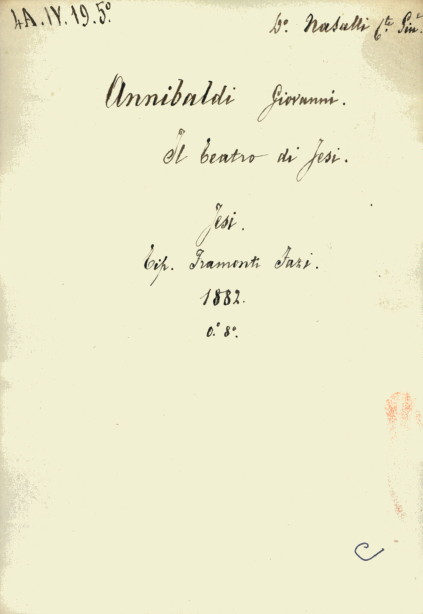 4A.IV.19.5°
D°. Naselli C.te Giu.e
Annibaldi Giovanni.
Il teatro di Jesi.
Jesi.
Tip. Framonti Fazi.
1882.
0.° 8°.